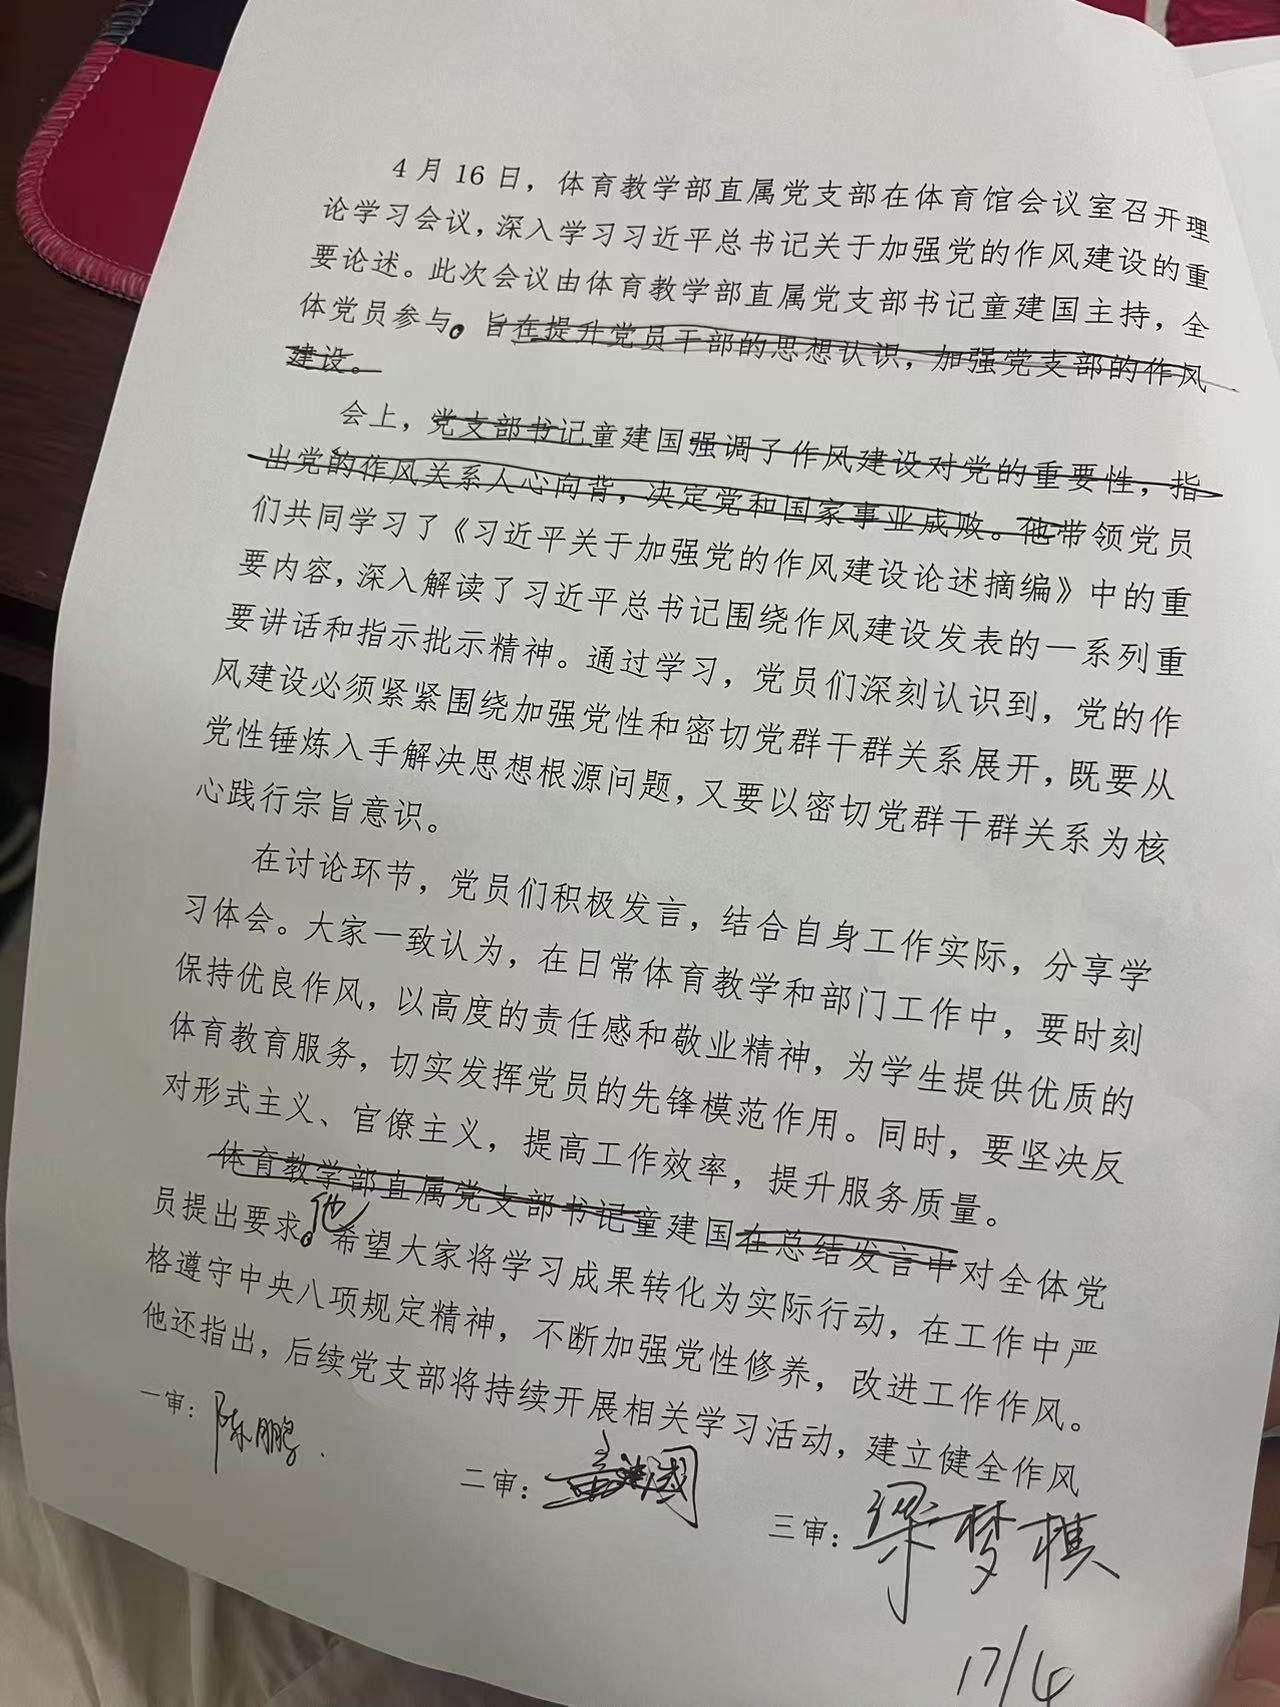 4月16日，体育教学部直属党支部在体育馆会议室召开理
论学习会议，深入学习习近平总书记关于加强党的作风建设的重
要论述。此次会议由体育教学部直属党支部书记童建国主持，全
体党员参与。旨在提升党员干部的思想认识，加强党支部的作风
建设。
会上，党支部书记童建国强调了作风建设对党的重要性，指
出党的作风关系人心向背，决定党和国家事业成败。他带领党员
们共同学习了《习近平关于加强党的作风建设论述摘编》中的重
要内容，深入解读了习近平总书记围绕作风建设发表的一系列重
要讲话和指示批示精神。通过学习，党员们深刻认识到，党的作
风建设必须紧紧围绕加强党性和密切党群干群关系展开，既要从
党性锤炼入手解决思想根源问题，又要以密切党群干群关系为核
心践行宗旨意识。
在讨论环节，党员们积极发言，结合自身工作实际，分享学
习体会。大家一致认为，在日常体育教学和部门工作中，要时刻
保持优良作风，以高度的责任感和敬业精神，为学生提供优质的
体育教育服务，切实发挥党员的先锋模范作用。同时，要坚决反
对形式主义、官僚主义，提高工作效率，提升服务质量。
体育教学部直属党支部书记童建国在总结发言中对全体党
员提出要求。他希望大家将学习成果转化为实际行动，在工作中严
格遵守中央八项规定精神，不断加强党性修养，改进工作作风。
他还指出，后续党支部将持续开展相关学习活动，建立健全作风
一审：陈鹏
二审：童建国
三审：梁梦棋
17/4